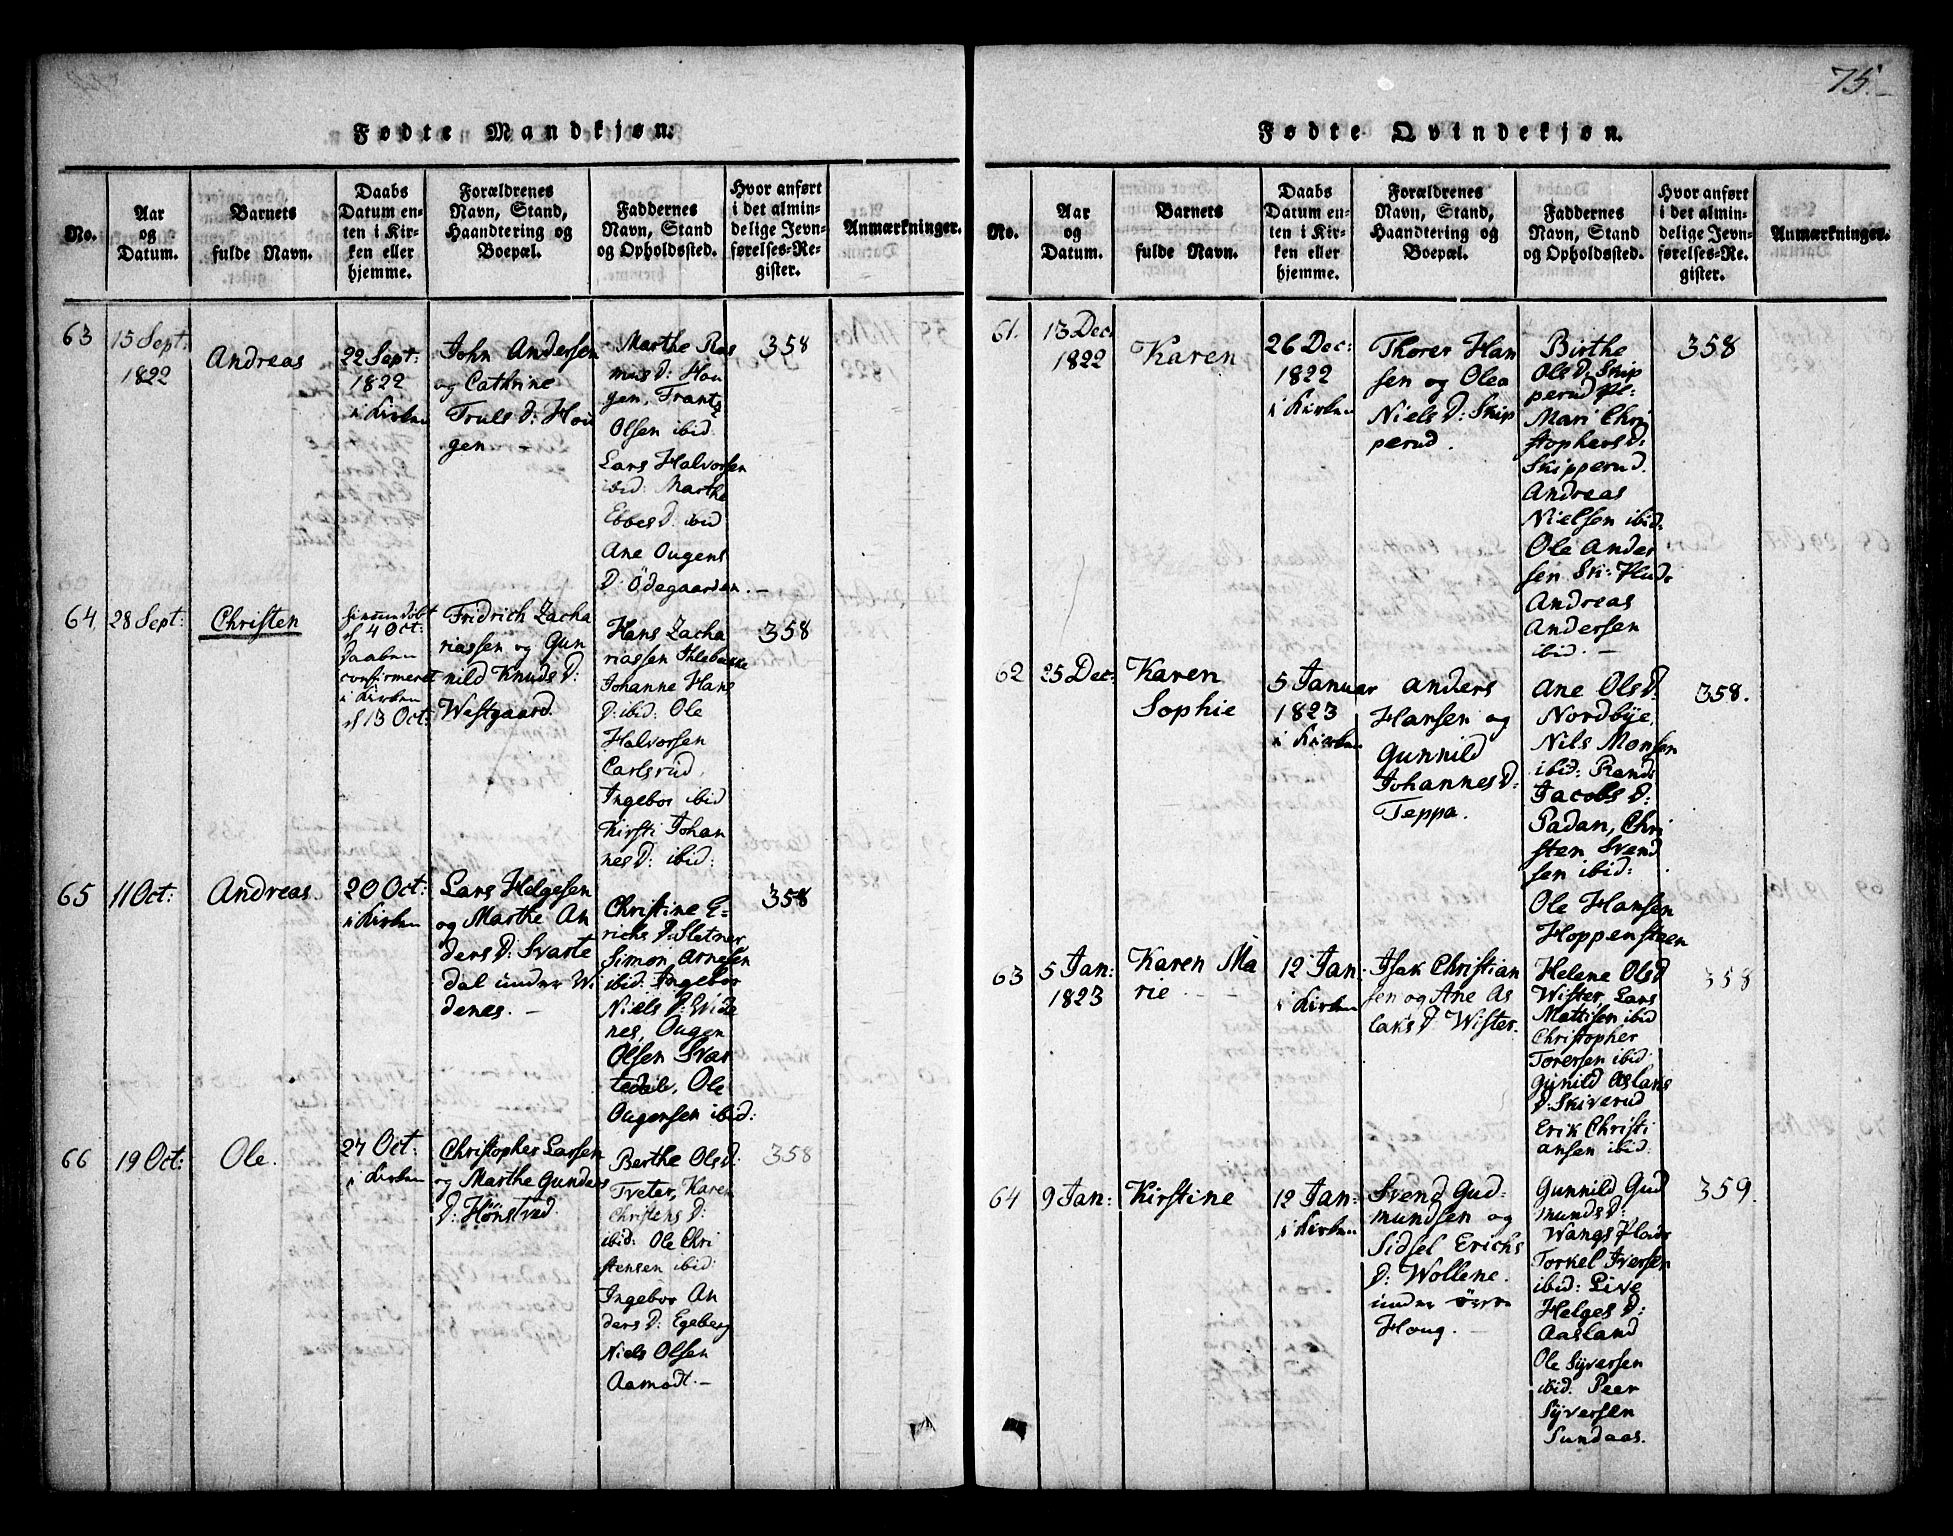 75.
Fødte Mandkjøn.
No.
Aar
og
Datum.
Barnets
fulde Navn.
Daabs
Datum en-
ten i Kir-
ken eller
hjemme.
Forældrenes
Navn, Stand,
Haandtering og
Boepæl.
Faddernes
Navn, Stand
og Opholdssted.
Hvor anført
i det almin-
delige Jevn-
førelses-Re-
gister.
Anmærkninger.
63
15 Sept:
1822
Andreas
22 Sept:
1822
i Kirken
John Andersen
og Cathrine
Truls D: Hou
gen. —
Marthe Ras
mus D: Hou
gen, Frantz
Olsen ibid
Lars Halvorsen
ibid: Marthe
Ebbes D: ibid
Ane Ougens
D: Ödegaarden. —
358
64
28 Sept:
Christen
d 4 Oct:
Daaben
confirmeret
i Kirken
d 13 Oct:
Fridrich Zacha
riassen og Gun
nild Knuds D:
Westgaard.
Hans Zacha
riassen
Johanne Hans
D: ibid: Ole
Halvorsen
Carlsrud,
Ingebor ibid
Kirsti Johan
nes D: ibid:
358
65
11 Oct:
Andreas.
20 Oct:
i Kirken
Lars Helgesen
og Marthe An
ders D: Svarte
dal under Wi
denes. —
Christine E-
richs D: Sletner
Simon Arnesen
ibid: Ingebor
Niels D: Wide
nes, Ougen
Olsen Svar
tedal, Ole
Ougensen ibid:
358
66
19 Oct:
Ole.
27 Oct:
i Kirken
Christopher Larsen
og Marthe Gunders
D: Hönstved
Berthe Ols D:
Tveter, Karen
Christens D:
ibid: Ole Chri
stensen ibid:
Ingebor An
ders D: Egeberg
Niels Olsen
Aamodt. —
358
Fødte Qvindekjøn.
No.
Aar
og
Datum.
Barnets
fulde Navn.
Daabs
Datum en-
ten i Kir-
ken eller
hjemme.
Forældrenes
Navn, Stand,
Haandtering og
Boepæl.
Faddernes
Navn, Stand
og Opholdssted.
Hvor anført
i det almin-
delige Jevn-
førelses-Re-
gister.
Anmærkninger.
61.
13 Dec:
1822
Karen
26 Dec:
1822
i Kirken
Thorer Han
sen og Olea
Niels D: Skip
perud.
Birthe
Ols D: Skip
perud Pl:
Mari Chri
stophers D:
Skipperud.
Andreas
Nielsen ibid:
Ole Ander
sen Sk: Plads
Andreas
Andersen
ibid. —
358
62
25 Dec:
Karen
Sophie
5 Januar
1823
i Kirken
Anders
Hansen og
Gunnild
Johannes D:
Teppa.
Ane Ols D:
Nordbÿe,
Nils Monsen
ibid: Randi
Jacobs D:
Padan, Chri
sten Svend
sen ibid:
Ole Hansen
Hoppensteen
358.
63
5 Jan:
1823
Karen Ma
rie. —
12 Jan.
i Kirken
Isak Christian
sen og Ane As
laks D: Wister.
Helene Ols D
Wister, Lars
Mattisen ibid
Christopher
Torersen ibid
Gunild Aslaks
D: Skiverud
Erik Christi
ansen ibid:
358
64
9 Jan:
Kirstine
12 Jan:
i Kirken
Svend Gud-
mundsen og
Sidsel Erichs
D: Wollene.
under övre
Houg. —
Gunnild Gud
munds D:
Wangs Plads
Torkel Iversen
ibid: Live
Helges D:
Aasland
Ole Sÿversen
ibid. Peer
Sÿversen
Sundaas.
359.